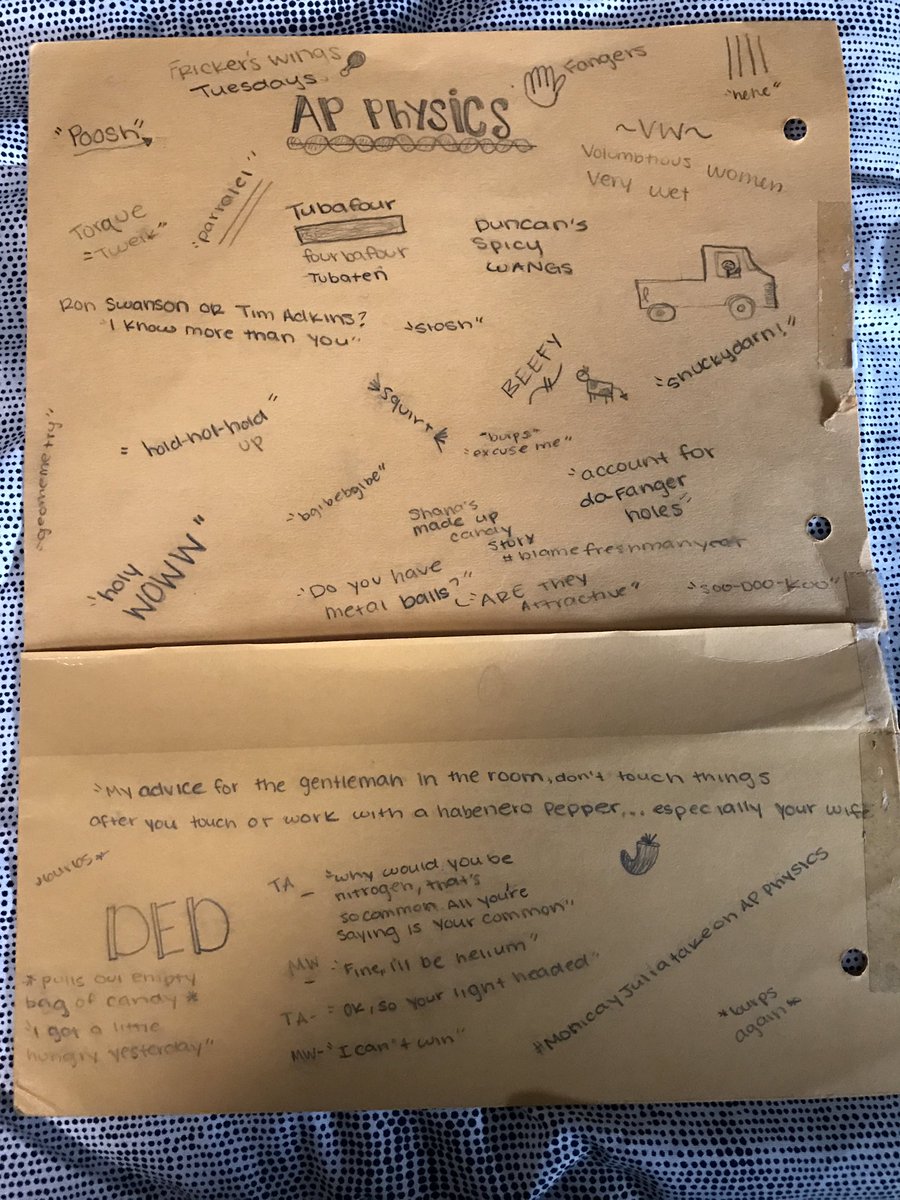 Fricker's wings
Tuesdays
Fangers
"hehe"
AP Physics
"Poosh"
~VW~
Volumbtuous women
Very wet
Torque
="Twerk"
"parralel"
Tubafour
fourbafour
Tubaten
Duncan's
Spicy
WANGS
Ron Swanson or Tim Adkins?
"I know more than you"
"slosh"
BEEFY
"Shuckydarn!"
"squirt"
"hold-hol-hold"
up
"geomemetry"
*burps*
"excuse me"
"account for
da-Fanger
holes"
"bgibebgibe"
Shana's
made up
candy
story
#blamefreshmanyear
"holy
WOWW"
"Do you have
metal balls?"
"ARE They
Attractive"
"Soo-Doo-Koo"
"My advice for the gentleman in the room, don't touch things
after you touch or work with a habenero pepper... especially your wife
*burps*
DED
*pulls out empty
bag of candy*
"I got a little
hungry yesterday"
TA - "why would you be
nitrogen, that's
so common. All you're
saying is your common"
MW - "Fine, I'll be helium"
TA- "OK, so your light headed"
MW- "I can't win"
#MonicayJuliatakeonAPPhysics
*burps
again*